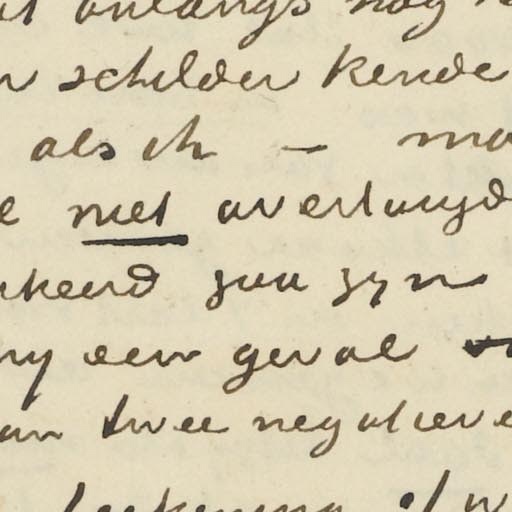 onlangs nog
schilder kende
als ik — ma
e niet overtuigd
rkeerd zou zyn
ny een geval
an twee negatieve
teekening of w